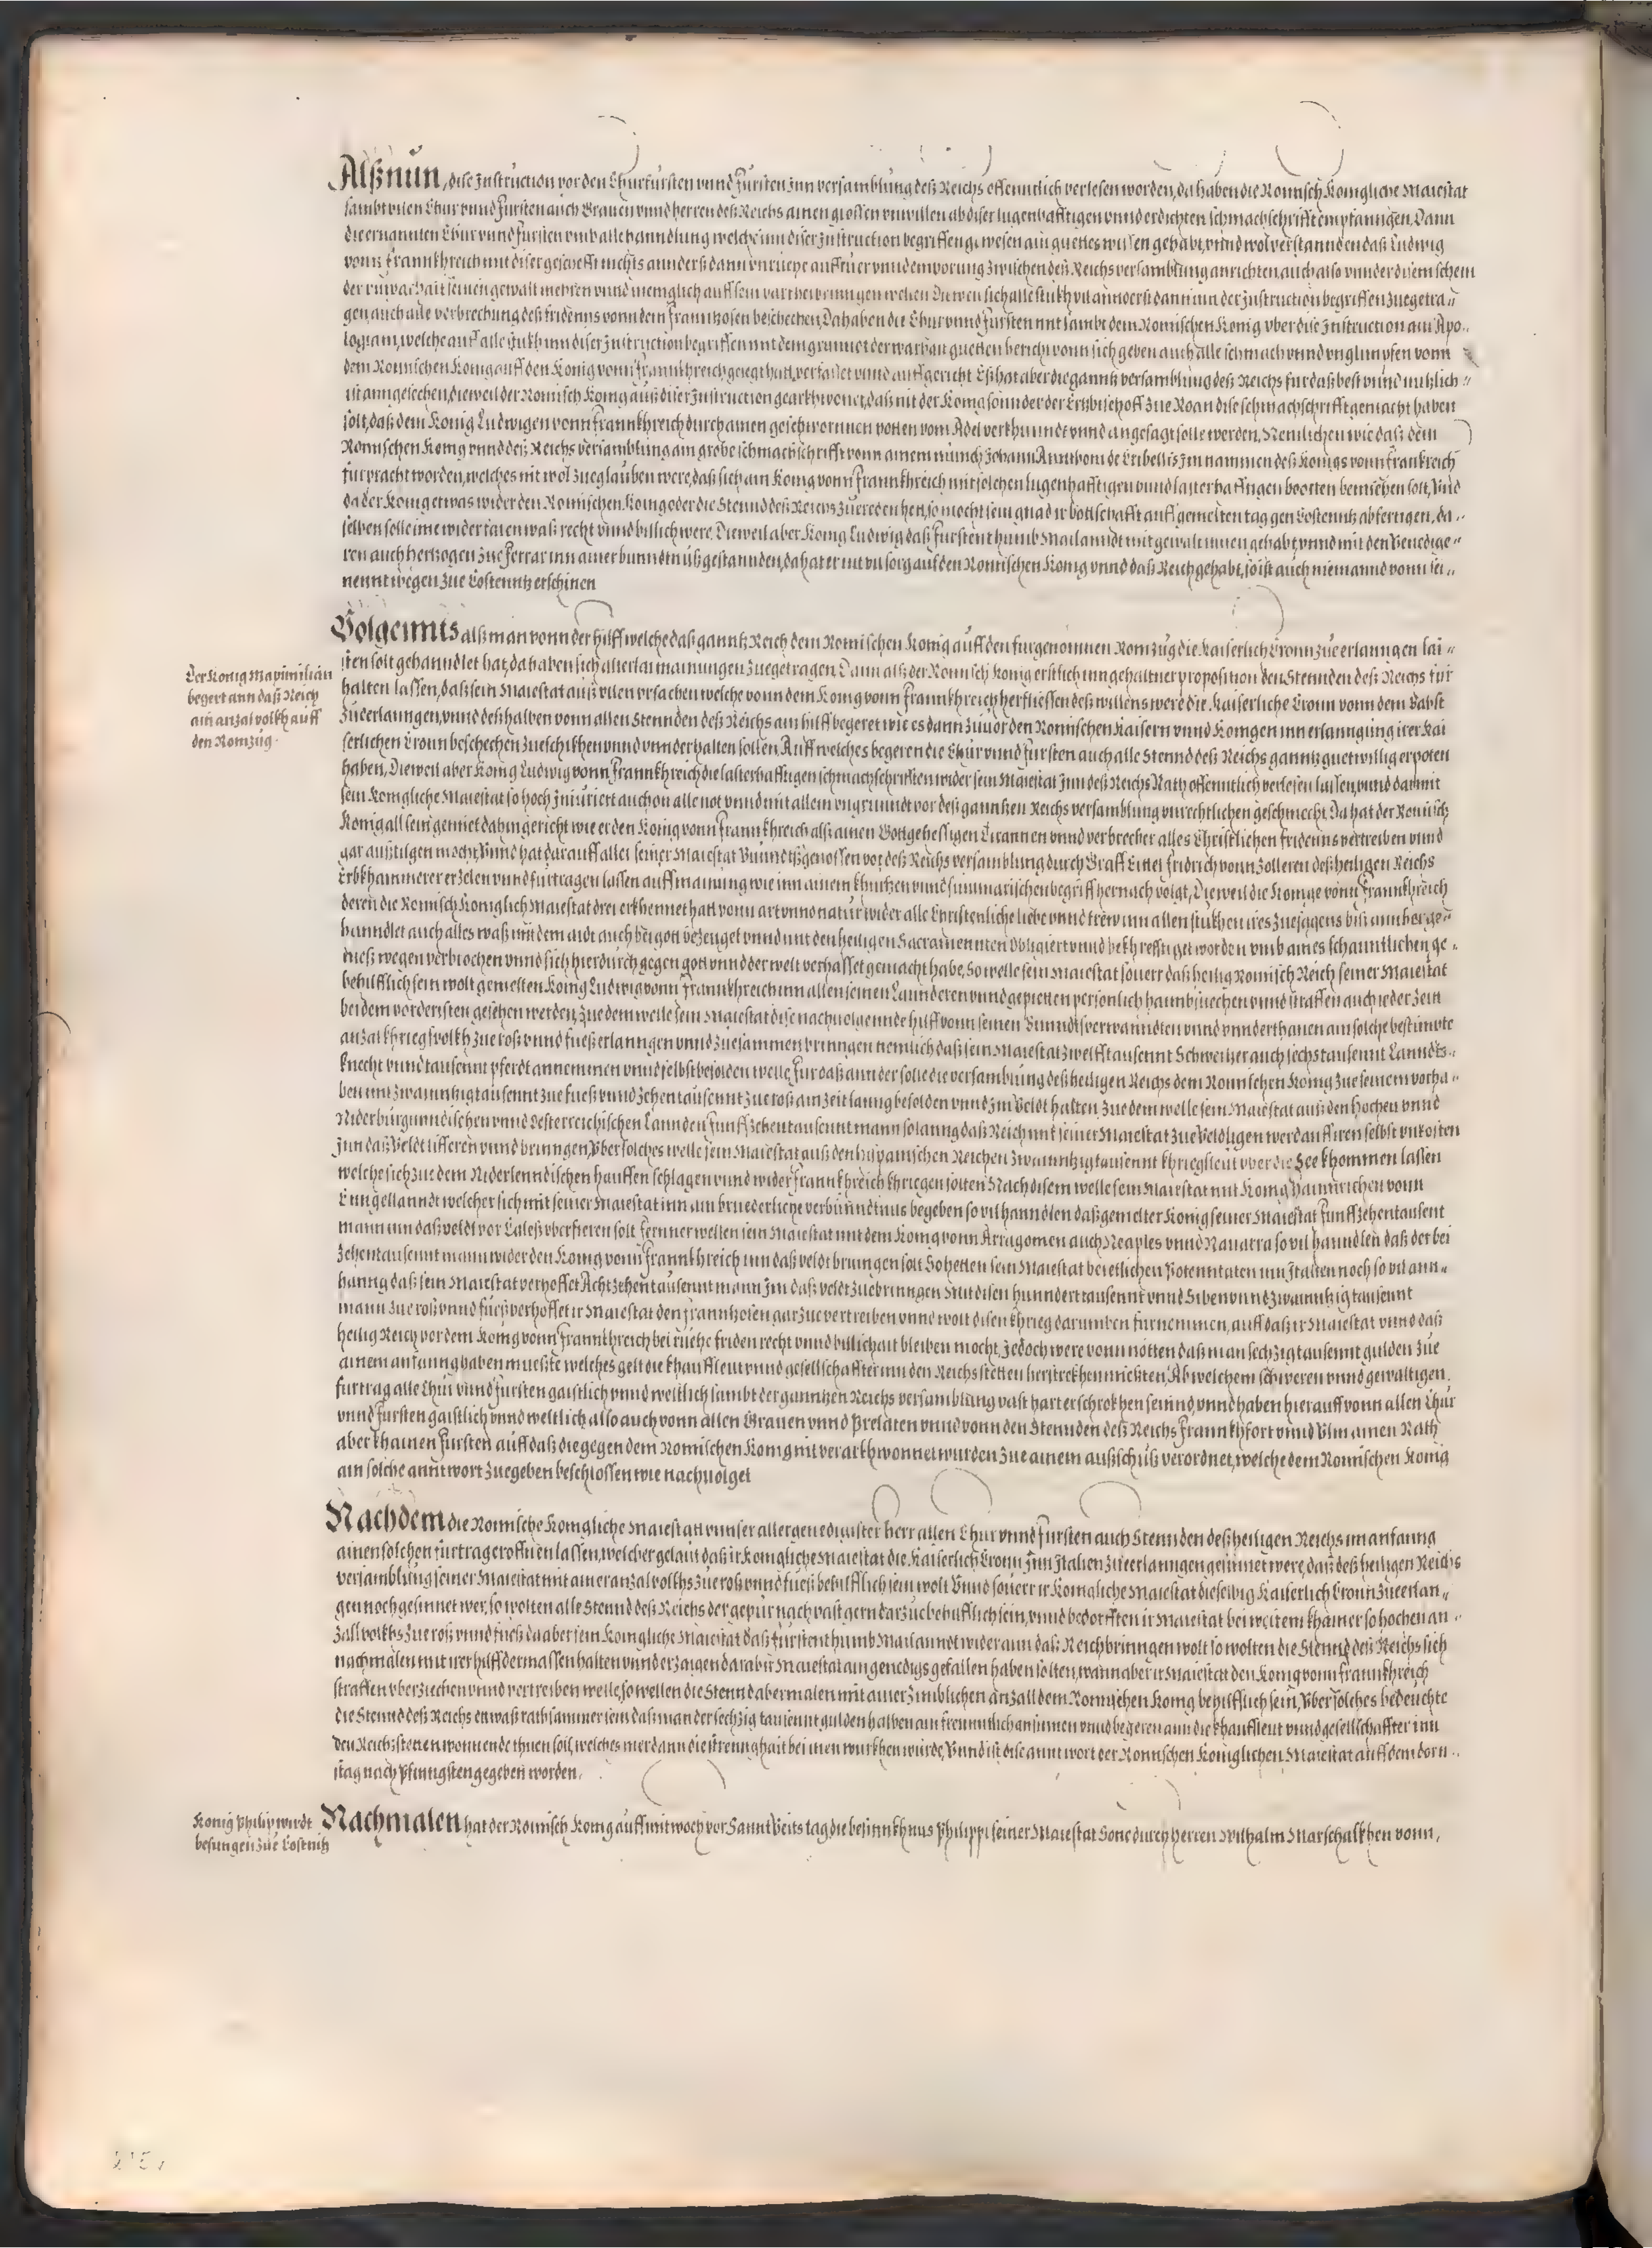 Alßnun, dise Instruction vor den Churfürsten vnnd Fürsten Inn versamblung deß Reichs offenntlich verlesen worden, da haben die Römisch Königliche Maiestat
sambt vilen Chur vnnd Fürsten auch Grauen vnnd herren deß Reichs ainen grossen vnwillen ab diser lugenhafftigen vnnd erdichten schmachschrifft empfanngen, Dann
die ernannten Chur vnnd Fürsten vmb alle hanndlung welche inn diser Instruction begriffen gewesen ain guettes wissen gehabt, vnnd wol verstannden daß Ludwig
vonn Frannkhreich mit diser geschrifft nichts annderß dann vnrueche auffruer vnnd emporung zwischen deß Reichs versamblung anrichten, auch also vnnder disem schein
der vnwarhait seinen gewalt mehren vnnd menigclich auff sein
gen auch alle verbrechung deß fridenns vonn dem Franntzosen beschechen, Da haben die Chur vnnd Fürsten mit sambt dem Römischen König vber dise Instruction ain Apo-
logiam, welche auff alle stukh inn diser Instruction begriffen mit dem grunndt der warhait guetten bericht vonn sich geben auch alle schmach vnnd vnglimpfen vonn
dem Römischen König auff den König vonn Frannkhreich gelegt hatt, verfasset vnnd auffgericht Eß hat aber die ganntz versamblung deß Reichs für daß best vnnd nutzlich-
ist anngesechen, dieweil der Römisch König auß diser Instruction gearkhwonet, daß nit der König sonnder der Ertzbischoff zue Roan dise schmachschrifft gemacht haben
solt, daß dem König Ludwigen vonn Frannkhreich durch ainen geschwornnen potten vom Adel verkhunndt vnnd angesagt solle werden, Nemlichen wie daß dem
Römischen König vnnd deß Reichs versamblung ain grobe schmachschrifft vonn ainem münch Johann Annthoni de Eribellis Im nammen deß Königs vonn Frankreich
furpracht worden, welches nit wol zueglauben were, daß sich ain König vonn Frannkhreich mit solchen lugenhafftigen vnnd lasterhafftigen wortten bemüehen solt, Vnd
da der König etwas wider den Römischen König oder die Stennd deß Reichs zuereden hett, so möcht sein gnad ir bottschafft auff gemelten tag gen Costenntz abfertigen, da-
selben solle ime widerfaren waß recht vnnd billich were, Dieweil aber König Ludwig daß Fürstenthumb Mailanndt mit gewalt innen gehabt, vnnd mit den Venedige-
ren auch hertzogen zue Ferrar inn ainer bunndtnuß gestannden, da hat er nit vil sorg auf den Römischen König vnnd daß Reich gehabt, so ist auch niemannd vonn sei-
nennt wegen zue Costenntz erschinen
Volgennts alß man vonn der hilff welche daß ganntz Reich dem Römischen König auff den furgenomnen Romzug die Kaiserlich Cronn zueerlanngen lai-
sten solt gehanndlet hat, da haben sich allerlai mainungen zuegetragen, Dann alß der Römisch König erstlich inn gehaltner proposition den Stennden deß Reichs für
halten lassen, daß sein Maiestat auß vilen vrsachen welche vonn dem König vonn Frannkhreich herfliessen deß willens were die Kaiserliche Cronn vonn dem Babst
zueerlanngen, vnnd deßhalben vonn allen Stennden deß Reichs ain hilff begeret wie es dann zuuor den Römischen Kaisern vnnd Königen inn erlanngung irer Kai
serlichen Cronn beschechen zueschikhen vnnd vnnderhalten sollen, Auff welches begeren die Chur vnnd Fürsten auch alle Stennd deß Reichs ganntz guetwillig erpoten
haben, Dieweil aber König Ludwig vonn Frannkhreich die lasterhafftigen schmachschrifften wider sein Maiestat Inn deß Reichs Rath offenntlich verlesen lassen, vnnd darmit
sein Königliche Maiestat so hoch Iniuriert auch on alle not vnnd mit allem vngrunndt vor deß ganntzen Reichs versamblung vnrechtlichen geschmecht, Da hat der Römisch
König all sein gemiet dahin gericht wie er den König vonn Frannkhreich alß ainen Gottgehessigen Tirannen vnnd verbrecher alles Christlichen fridenns vertreiben vnnd
gar außtilgen möcht, Vnnd hat darauff aller seiner Maiestat Bunndtßgenossen vor deß Reichs versamblung durch Graff Eittel Fridrich vonn Zolleren deß heiligen Reichs
Erbkhammerer erzelen vnnd furtragen lassen auff mainung wie inn ainem khurtzen vnnd summarischen begriff hernach volgt, Dieweil die Könige vonn Frannkhreich
deren die Römisch Königlich Maiestat drei erkhennet hatt vonn art vnnd natur wider alle Christenliche liebe vnnd trew inn allen stukhen ires zuesagens biß annher ge-
hanndlet auch alles waß mit dem aidt auch bei gott bezeuget vnnd mit den heiligen Sacramennten obligiert vnnd bekhrefftiget worden vmb aines schanntlichen ge-
nieß wegen verbrochen vnnd sich hierdurch gegen gott vnnd der welt verhasset gemacht habe, So welle sein Maiestat souerr daß heilig Römisch Reich seiner Maiestat
behilfflich sein wolt gemelten König Ludwig vonn Frannkhreich inn allen seinen Lannderen vnnd gepietten persönlich haimbsuechen vnnd straffen auch ieder zeit
bei dem vordersten gesehen werden, Zue dem welle sein Maiestat dise nachuolgennde hilff vonn seinen Bunndtsverwanndten vnnd vnnderthanen ain solche bestimbte
anzal khriegsvolkh zue roß vnnd fueß erlanngen vnnd zuesammen bringen nemlich daß sein Maiestat zwelfftausennt Schweitzer auch sechstausennt Lanndts-
knecht vnnd tausennt pferdt annemmen vnnd selbst besolden welle, Fur daß annder solle die versamblung deß heiligen Reichs dem Römischen König zue seinem vorha-
ben mit zwanntzigtausennt zue fueß vnnd zehentausennt zue roß ain zeit lanng besolden vnnd Im Veldt halten Zue dem welle sein Maiestat auß den Hochen vnnd
Niderburgundischen vnnd Oesterreichischen Lannden funffzehentausennt mann solanng daß Reich mit seiner Maiestat zue Veldt ligen werd auff iren selbst vnkosten
Inn daß Veldt lifferen vnnd bringen, Vber solches welle sein Maiestat auß den hispanischen Reichen zwanntzigtausennt khriegsleut vber die See khommen lassen
welche sich zue dem Niderlenndischen hauffen schlagen vnnd wider Frannkhreich khriegen solten Nach disem welle sein Maiestat mit König Hainnrichen vonn
Enngellanndt welcher sich mit seiner Maiestat inn ain bruederliche verbündtnus begeben so vil hanndlen daß gemelter König seiner Maiestat funffzehentausent
mann inn daß veldt vor Caleß vberfieren solt Fernner wellen sein Maiestat mit dem König vonn Arragonien auch Neaples vnnd Nauarra so vil hanndlen daß der bei
zehentausennt mann wider den König vonn Frannkhreich inn daß veldt bringen solt So hetten sein Maiestat bei etlichen Potenntaten inn Italien noch so vil ann-
hanng daß sein Maiestat verhoffet Achtzehentausennt mann Inn daß veldt zuebringen Mit disen hunndert tausennt vnnd Siben vnnd zwanntzig tausennt
mann zue roß vnnd fueß verhoffet ir Maiestat den Franntzosen gar zue vertreiben vnnd wolt disen khrieg darumben furnemmen, auff daß ir Maiestat vnnd daß
heilig Reich vor dem König vonn Frannkhreich bei rueche friden recht vnnd billichait bleiben möcht, Jedoch were vonn nötten daß man sechzigtausennt gulden zue
ainem anfanng haben mueßte welches gelt die khauffleut vnnd gesellschaffter inn den Reichs stetten herstrekhen mießten, Ab welchem schweren vnnd gewaltigen
furtrag alle Chur vnnd Fürsten gaistlich vnnd weltlich sambt der ganntzen Reichs versamblung vast hart erschrokhen seinnd, vnnd haben hierauff vonn allen Chur
vnnd Fursten gaistlich vnnd weltlich also auch vonn allen Grauen vnnd Prelaten vnnd vonn den Stennden deß Reichs Frannkhfort vnnd Vlm ainen Rath
aber khainen Fürsten auff daß die gegen dem Römischen König nit verarkhwonnet wurden zue ainem außschuß verordnet, welche dem Römischen König
ain solche anntwort zuegeben beschlossen wie nachuolget
Nachdem die Römische Königliche Maiestatt vnnser allergenedigister herr allen Chur vnnd Fürsten auch Stennden deß heiligen Reichs im anfanng
ainen solchen furtrag eröffnen lassen, welcher gelaut daß ir Königliche Maiestat die Kaiserlich Cronn Inn Italien zueerlanngen gesinnet were, daß deß heiligen Reichs
versamblung seiner Maiestat mit ainer anzal volkhs zue roß vnnd fueß behilfflich sein wolt Vnnd souerr ir Königliche Maiestat dieselbig Kaiserlich Cronn zueerlan-
gen noch gesinnet wer, so wolten alle Stennd deß Reichs der gepür nach vast gern darzue behilfflich sein, vnnd bedörfften ir Maiestat bei weitem khainer so hochen an-
zall volkhs zue roß vnnd fueß da aber sein Königliche Maiestat daß fürstenthumb Mailanndt wider ann daß Reich bringen wolt so wolten die Stennd deß Reichs sich
nachmalen mit irer hilff dermassen halten vnnd erzaigen darab ir Maiestat ain genedigs gefallen haben solten, wann aber ir Maiestat den König vonn Frannkhreich
straffen vberziechen vnnd vertreiben welle, so wellen die Stennd abermalen mit ainer zimblichen anzall dem Römischen König behilfflich sein, Vber solches bedeuchte
die Stennd deß Reichs etwaß rathsammer sein daß man der sechzig tausennt gulden halben ain freunntlich ansinnen vnnd begeren ann die khauffleut vnnd gesellschaffter inn
den Reichsstetten wonnende thuen soll, welches mer dann die strennghait bei inen wurkhen wurde, Vnnd ist dise anntwort der Römischen Königlichen Maiestat auff dem dorn-
stag nach Pfinngsten gegeben worden.
Nachmalen hat der Römisch König auff mitwoch vor Sannt Veits tag die besinnkhnus Philippi seiner Maiestat Sone durch herren Wilhalm Marschalkhen vonn,
Der König Maximilian
begert ann daß Reich
ain anzal volkh auff
den Romzug.
König Philip wirdt
besungen zue Costnitz